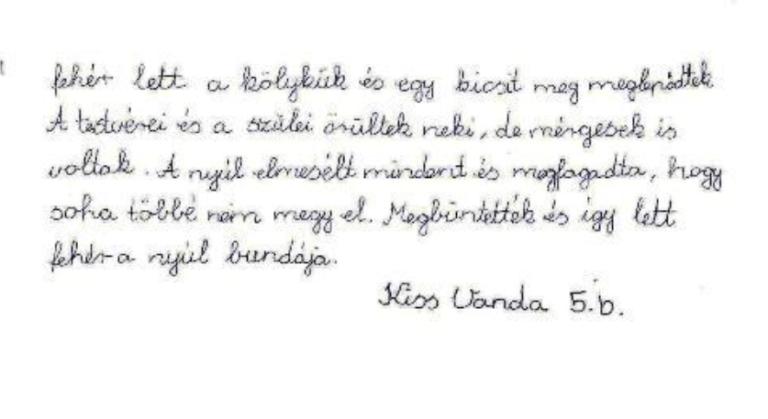 fehér lett a kölykük és egy bicsit meg meglepődtek
A testvérei és a szülei örültek neki, de mérgesek is
voltak. A nyúl elmesélt mindent és megfagadta, hogy
soha többé nem megy el. Megbüntették és így lett
fehér a nyúl bundája.
Kiss Vanda 5.b.